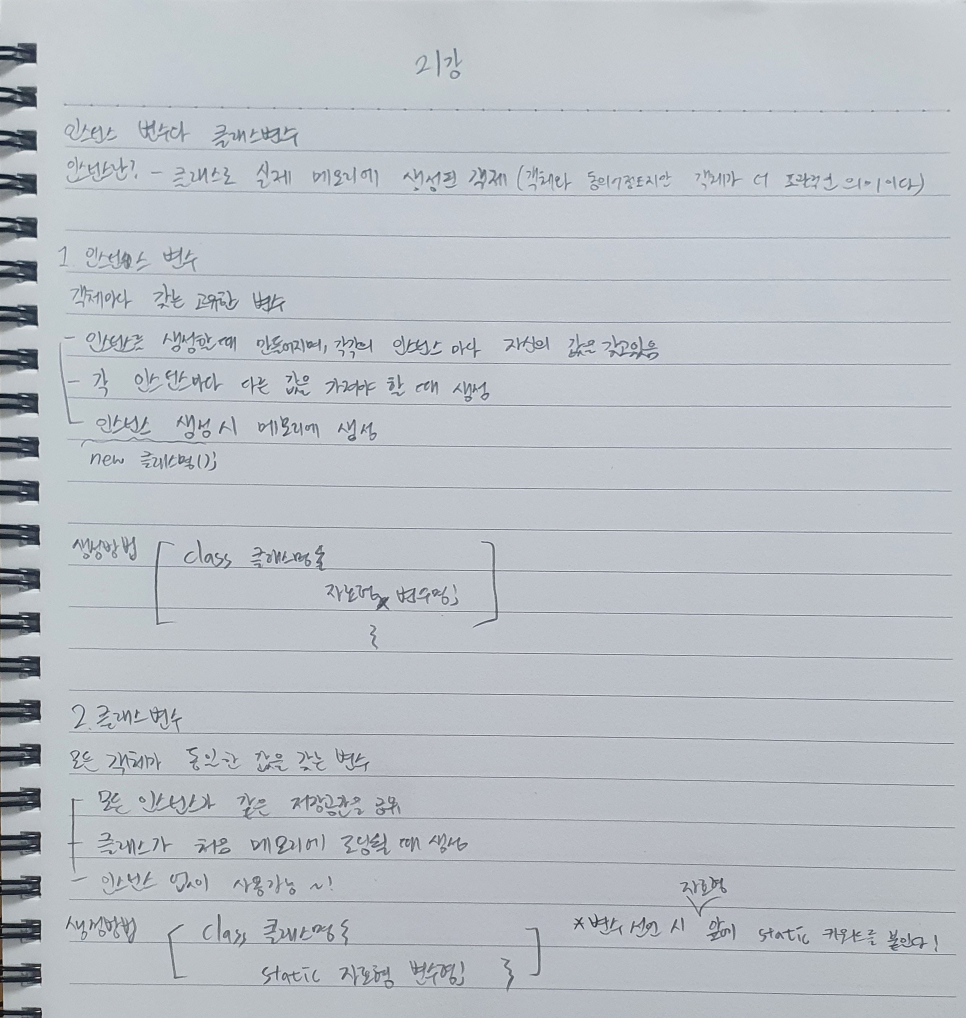 21강
인스턴스 변수와 클래스변수
인스턴스란? - 클래스로 실제 메모리에 생성된 객체 (객체와 동의어정도지만 객체가 더 포괄적인 의미이다)
1 인스턴스 변수
객체마다 갖는 고유한 변수
- 인스턴스를 생성할 때 만들어지며, 각각의 인스턴스마다 자신의 값을 갖고있음
- 각 인스턴스마다 다른 값을 가져야 할 때 생성
- 인스턴스 생성 시 메모리에 생성
new 클래스명();
생성방법 [ class 클래스명{
자료형 변수명;
} ]
2. 클래스변수
모든 객체가 동일한 값을 갖는 변수
- 모든 인스턴스가 같은 저장공간을 공유
- 클래스가 처음 메모리에 로딩될 때 생성
- 인스턴스 없이 사용가능 ~!
자료형
생성방법 [ class 클래스명 { * 변수 선언 시 ∨ 앞에 static 키워드를 붙인다!
static 자료형 변수명; } ]